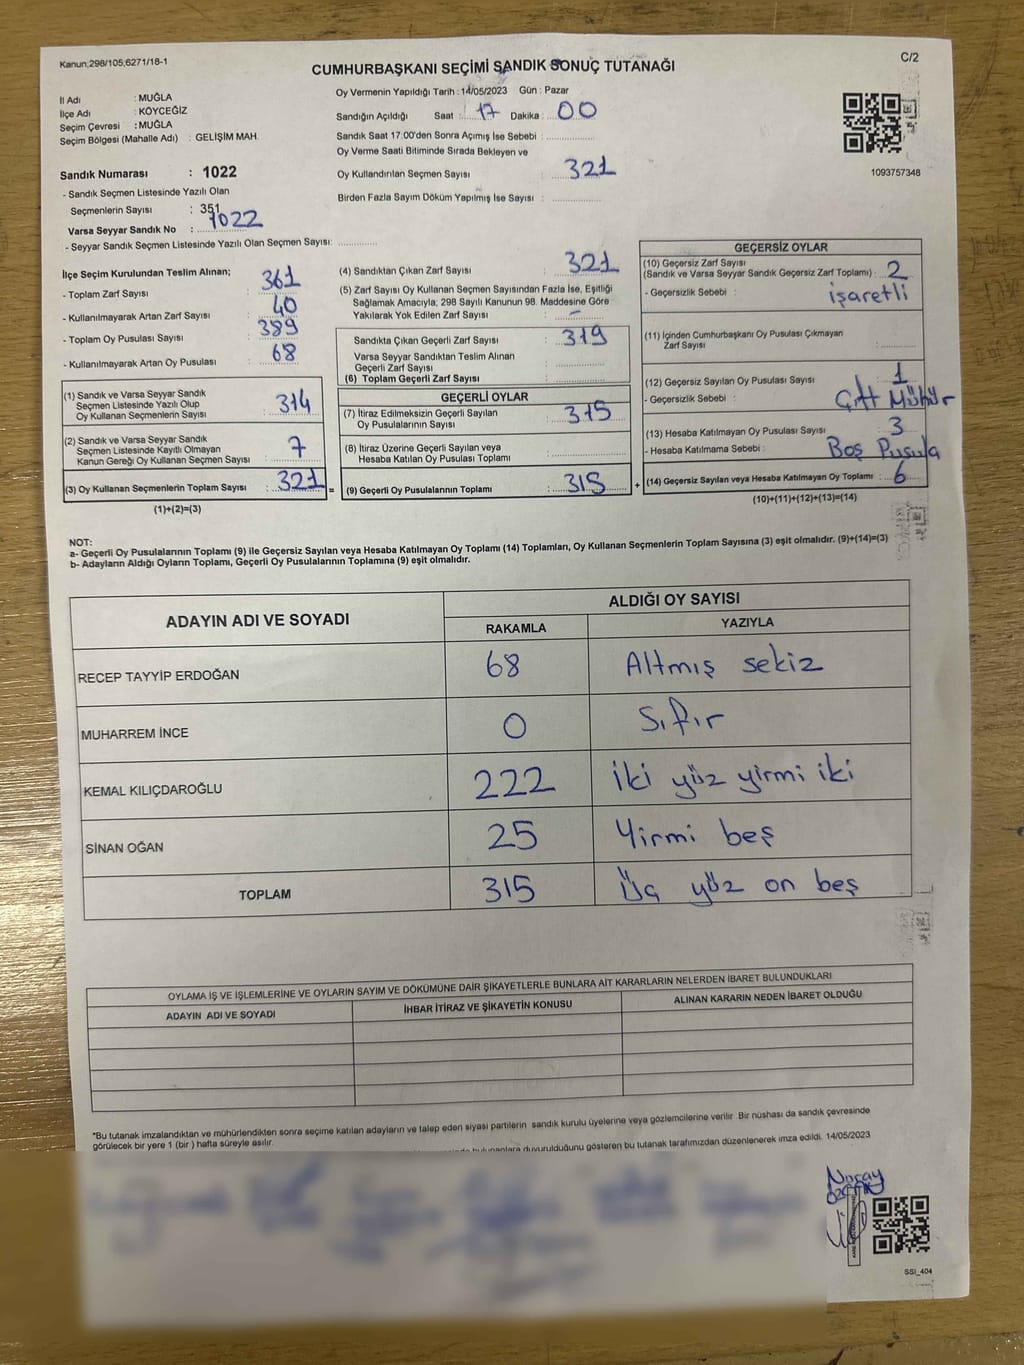 Kanun;298/105;6271/18-1
C/2
CUMHURBAŞKANI SEÇİMİ SANDIK SONUÇ TUTANAĞI
İl Adı : MUĞLA
İlçe Adı : KÖYCEĞİZ
Seçim Çevresi : MUĞLA
Seçim Bölgesi (Mahalle Adı) : GELİŞİM MAH.
Sandık Numarası : 1022
- Sandık Seçmen Listesinde Yazılı Olan
Seçmenlerin Sayısı : 351
Varsa Seyyar Sandık No : 1022
- Seyyar Sandık Seçmen Listesinde Yazılı Olan Seçmen Sayısı:
Oy Vermenin Yapıldığı Tarih : 14/05/2023 Gün : Pazar
Sandığın Açıldığı Saat : 17 Dakika : 00
Sandık Saat 17:00'den Sonra Açımış İse Sebebi :
Oy Verme Saati Bitiminde Sırada Bekleyen ve
Oy Kullandırılan Seçmen Sayısı : 321
Birden Fazla Sayım Döküm Yapılmış İse Sayısı :
1093757348
İlçe Seçim Kurulundan Teslim Alınan;
- Toplam Zarf Sayısı : 361
- Kullanılmayarak Artan Zarf Sayısı : 40
- Toplam Oy Pusulası Sayısı : 389
- Kullanılmayarak Artan Oy Pusulası : 68
(1) Sandık ve Varsa Seyyar Sandık
Seçmen Listesinde Yazılı Olup
Oy Kullanan Seçmenlerin Sayısı : 314
(2) Sandık ve Varsa Seyyar Sandık
Seçmen Listesinde Kayıtlı Olmayan
Kanun Gereği Oy Kullanan Seçmen Sayısı : 7
(3) Oy Kullanan Seçmenlerin Toplam Sayısı : 321 =
(1)+(2)=(3)
(4) Sandıktan Çıkan Zarf Sayısı : 321
(5) Zarf Sayısı Oy Kullanan Seçmen Sayısından Fazla İse, Eşitliği
Sağlamak Amacıyla; 298 Sayılı Kanunun 98. Maddesine Göre
Yakılarak Yok Edilen Zarf Sayısı : -
Sandıkta Çıkan Geçerli Zarf Sayısı : 319
Varsa Seyyar Sandıktan Teslim Alınan
Geçerli Zarf Sayısı :
(6) Toplam Geçerli Zarf Sayısı :
GEÇERLİ OYLAR
(7) İtiraz Edilmeksizin Geçerli Sayılan
Oy Pusulalarının Sayısı : 315
(8) İtiraz Üzerine Geçerli Sayılan veya
Hesaba Katılan Oy Pusulası Toplamı :
(9) Geçerli Oy Pusulalarının Toplamı : 315 +
GEÇERSİZ OYLAR
(10) Geçersiz Zarf Sayısı
(Sandık ve Varsa Seyyar Sandık Geçersiz Zarf Toplamı) : 2
- Geçersizlik Sebebi : işaretli
(11) İçinden Cumhurbaşkanı Oy Pusulası Çıkmayan
Zarf Sayısı :
(12) Geçersiz Sayılan Oy Pusulası Sayısı : 1
- Geçersizlik Sebebi : Çift Mühür
(13) Hesaba Katılmayan Oy Pusulası Sayısı : 3
- Hesaba Katılmama Sebebi : Boş Pusula
(14) Geçersiz Sayılan veya Hesaba Katılmayan Oy Toplamı : 6
(10)+(11)+(12)+(13)=(14)
NOT:
a- Geçerli Oy Pusulalarının Toplamı (9) ile Geçersiz Sayılan veya Hesaba Katılmayan Oy Toplamı (14) Toplamları, Oy Kullanan Seçmenlerin Toplam Sayısına (3) eşit olmalıdır. (9)+(14)=(3)
b- Adayların Aldığı Oyların Toplamı, Geçerli Oy Pusulalarının Toplamına (9) eşit olmalıdır.
ADAYIN ADI VE SOYADI
ALDIĞI OY SAYISI
RAKAMLA YAZIYLA
RECEP TAYYİP ERDOĞAN 68 Altmış sekiz
MUHARREM İNCE 0 Sıfır
KEMAL KILIÇDAROĞLU 222 iki yüz yirmi iki
SİNAN OĞAN 25 Yirmi beş
TOPLAM 315 Üç yüz on beş
OYLAMA İŞ VE İŞLEMLERİNE VE OYLARIN SAYIM VE DÖKÜMÜNE DAİR ŞİKAYETLERLE BUNLARA AİT KARARLARIN NELERDEN İBARET BULUNDUKLARI
ADAYIN ADI VE SOYADI İHBAR İTİRAZ VE ŞİKAYETİN KONUSU ALINAN KARARIN NEDEN İBARET OLDUĞU
*Bu tutanak imzalandıktan ve mühürlendikten sonra seçime katılan adayların ve talep eden siyasi partilerin sandık kurulu üyelerine veya gözlemcilerine verilir. Bir nüshası da sandık çevresinde
görülecek bir yere 1 (bir ) hafta süreyle asılır.
duyurulduğunu gösteren bu tutanak tarafımızdan düzenlenerek imza edildi. 14/05/2023
SSI_404